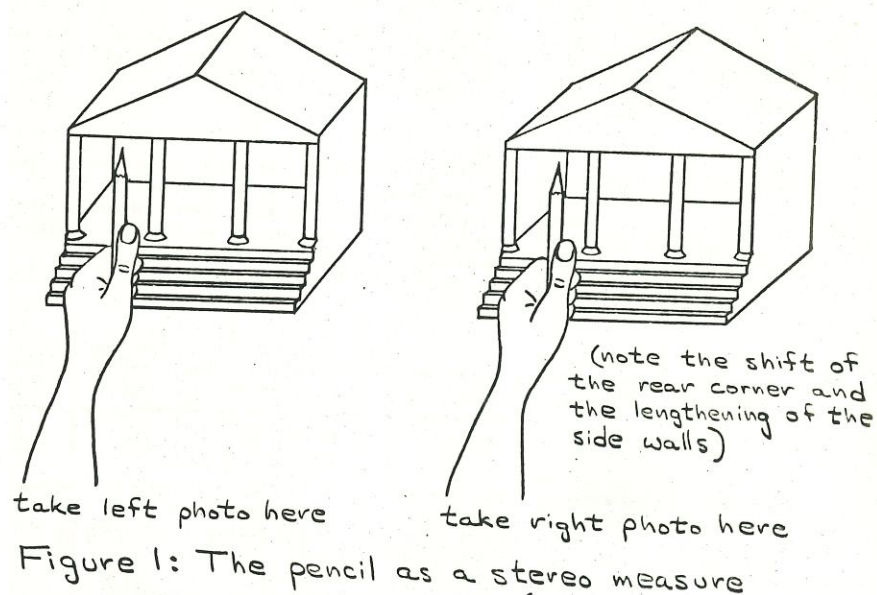 (note the shift of
the rear corner and
the lengthening of the
side walls)
take left photo here
take right photo here
Figure 1: The pencil as a stereo measure